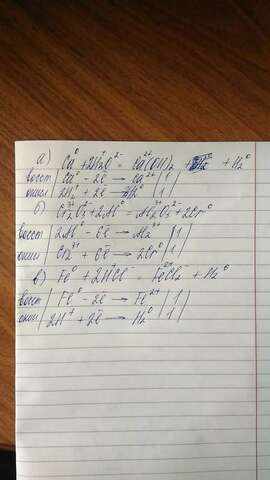 а) Ca⁰ + 2H₂⁺O²⁻ = Ca²⁺(OH)₂ + H₂⁰
восст | Ca⁰ - 2ē → Ca²⁺ | 1 |
окисл | 2H⁺ + 2ē → H₂⁰ | 1 |
б) Cr₂³⁺O₃²⁻ + 2Al⁰ = Al₂³⁺O₃²⁻ + 2Cr⁰
восст | 2Al⁰ - 6ē → Al₂³⁺ | 1
окисл | Cr₂³⁺ + 6ē → 2Cr⁰ | 1
в) Fe⁰ + 2H⁺Cl⁻ = Fe²⁺Cl₂ + H₂⁰
восст | Fe⁰ - 2ē → Fe²⁺ | 1
окис | 2H⁺ + 2ē → H₂⁰ | 1